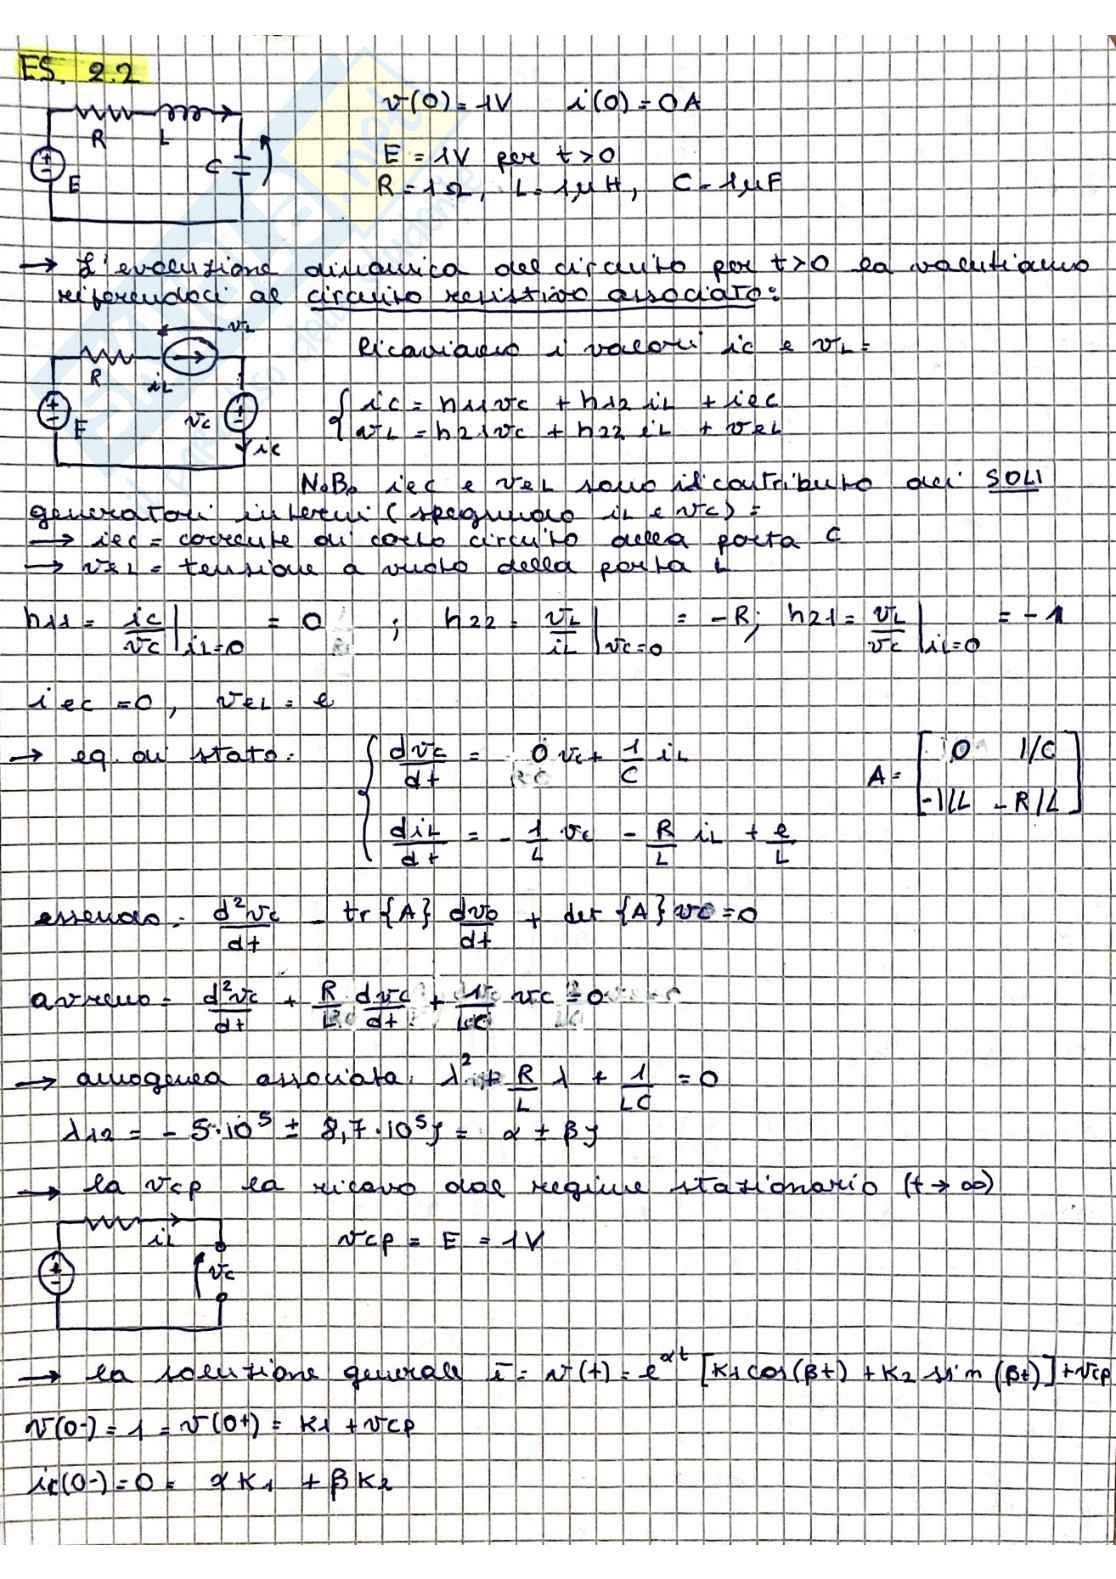 ES. 2.2
v(0) = 1V i(0) = 0A
R L C E
E = 1V per t>0
R = 1Ω, L = 1μH, C = 1μF
→ L'evoluzione dinamica del circuito per t>0 la valutiamo
riferendoci al circuito resistivo associato:
R iL vL E vC iC
Ricaviamo i valori ic e vL =
{ ic = h11 vc + h12 iL + iec
vL = h21 vc + h22 iL + veL
N.B. iec e veL sono il contributo dei SOLI
generatori interni (spegnendo iL e vc) =
→ iec = corrente di corto circuito della porta C
→ veL = tensione a vuoto della porta L
h11 = ic/vc | iL=0 = 0 ; h22 = vL/iL | vc=0 = -R; h21 = vL/vc | iL=0 = -1
iec = 0, veL = e
→ eq. di stato: { dvc/dt = 0 vc + 1/C iL A = [ 0 1/C
diL/dt = - 1/L vc - R/L iL + e/L -1/L -R/L ]
essendo: d²vc/dt - tr{A} dvc/dt + det{A} vc = 0
avremo = d²vc/dt + R/L dvc/dt + 1/LC vc = 0
→ omogenea associata: λ² + R/L λ + 1/LC = 0
λ12 = - 5·10⁵ ± 8,7·10⁵j = α ± βj
→ la vcp la ricavo dal regime stazionario (t → ∞)
iL vc
vcp = E = 1V
→ la soluzione generale è = v(t) = e^αt [K1 cos(βt) + K2 sin(βt)] + vcp
v(0-) = 1 = v(0+) = K1 + vcp
ic(0-) = 0 = αK1 + βK2